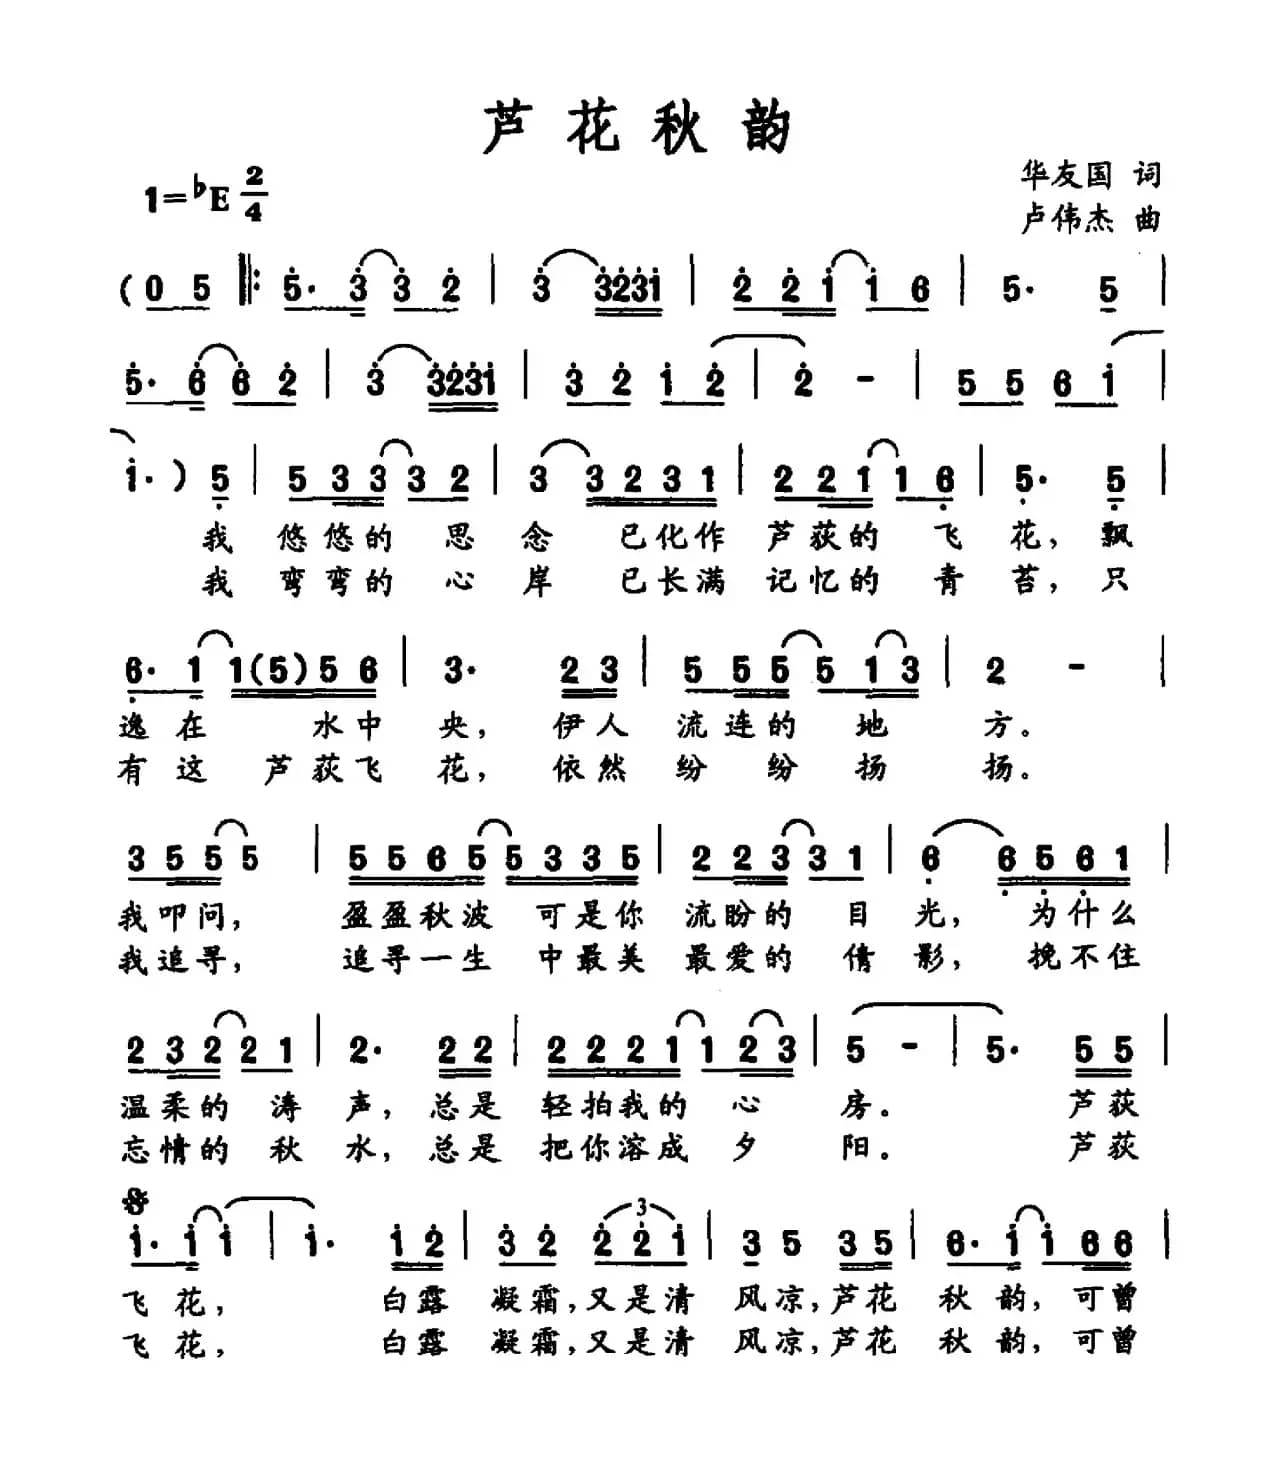 芦花秋韵
1=♭E 2/4
华友国 词
卢伟杰 曲
(0 5 ‖: 5· 3 3 2 | 3 3231 | 2 2 1 1 6 | 5· 5 |
5· 6 6 2 | 3 3231 | 3 2 1 2 | 2 - | 5 5 6 1 |
1·) 5 | 5 3 3 3 2 | 3 3 2 3 1 | 2 2 1 1 6 | 5· 5 |
我 悠悠的 思 念 已化作 芦荻的 飞 花，飘
我 弯弯的 心 岸 已长满 记忆的 青 苔，只
6· 1 1(5)5 6 | 3· 2 3 | 5 5 5 5 1 3 | 2 - |
逸在 水中 央，伊人 流连的 地 方。
有这 芦荻飞 花，依然 纷 纷扬 扬。
3 5 5 5 | 5 5 6 5 5 3 3 5 | 2 2 3 3 1 | 6 6 5 6 1 |
我叩问，盈盈秋波 可是你 流盼的 目 光，为什么
我追寻，追寻一生 中最美 最爱的 倩 影，挽不住
2 3 2 2 1 | 2· 2 2 | 2 2 2 1 1 2 3 | 5 - | 5· 5 5 |
温柔的 涛 声，总是 轻拍我的 心 房。 芦荻
忘情的 秋 水，总是 把你溶成 夕 阳。 芦荻
𝄋
1· 1 1 | 1· 1 2 | 3 2 2 2 1 | 3 5 3 5 | 6· 1 1 6 6 |
3
飞 花， 白露 凝霜，又是清 风凉，芦花 秋 韵，可曾
飞 花， 白露 凝霜，又是清 风凉，芦花 秋 韵，可曾